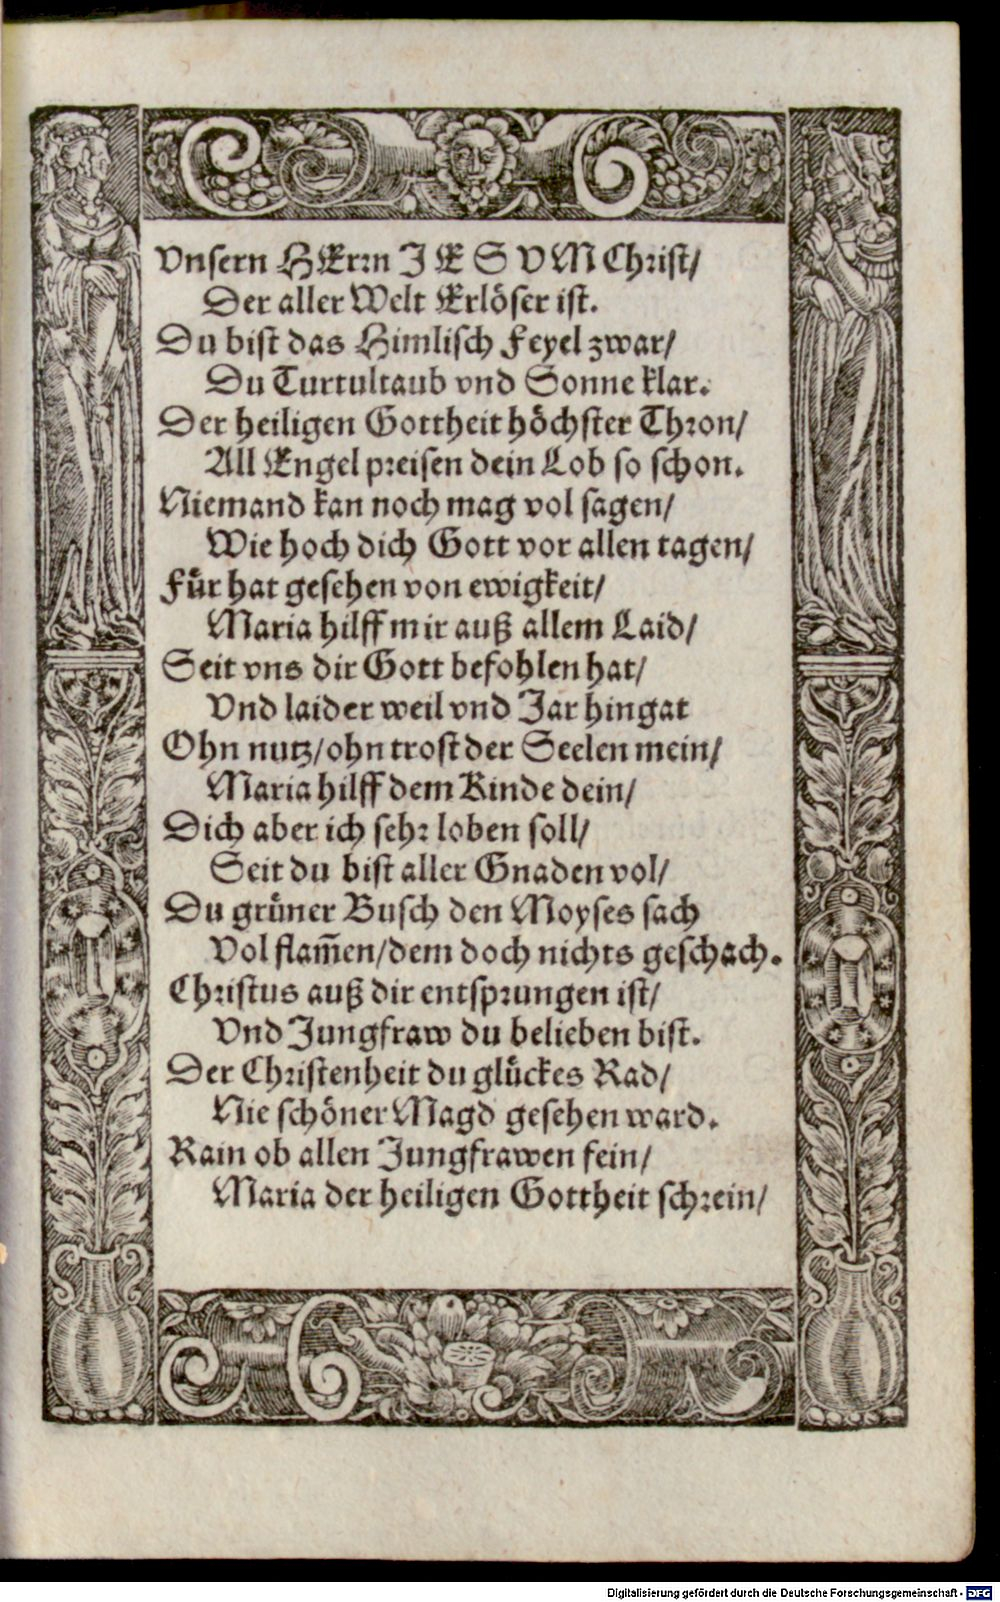 Vnsern HErrn JESVM Christ/
Der aller Welt Erlöser ist.
Du bist das Himlisch Feyel zwar/
Du Turtultaub vnd Sonne klar.
Der heiligen Gottheit höchster Thron/
All Engel preisen dein Lob so schon.
Niemand kan noch mag vol sagen/
Wie hoch dich Gott vor allen tagen/
Für hat gesehen von ewigkeit/
Maria hilff mir auß allem Laid/
Seit vns dir Gott befohlen hat/
Vnd laider weil vnd Jar hingat
Ohn nutz/ohn trost der Seelen mein/
Maria hilff dem Kinde dein/
Dich aber ich sehr loben soll/
Seit du bist aller Gnaden vol/
Du grüner Busch den Moyses sach
Vol flam̃en/dem doch nichts geschach.
Christus auß dir entsprungen ist/
Vnd Jungfraw du belieben bist.
Der Christenheit du glückes Rad/
Nie schöner Magd gesehen ward.
Rain ob allen Jungfrawen fein/
Maria der heiligen Gottheit schrein/
Digitalisierung gefördert durch die Deutsche Forschungsgemeinschaft - DFG